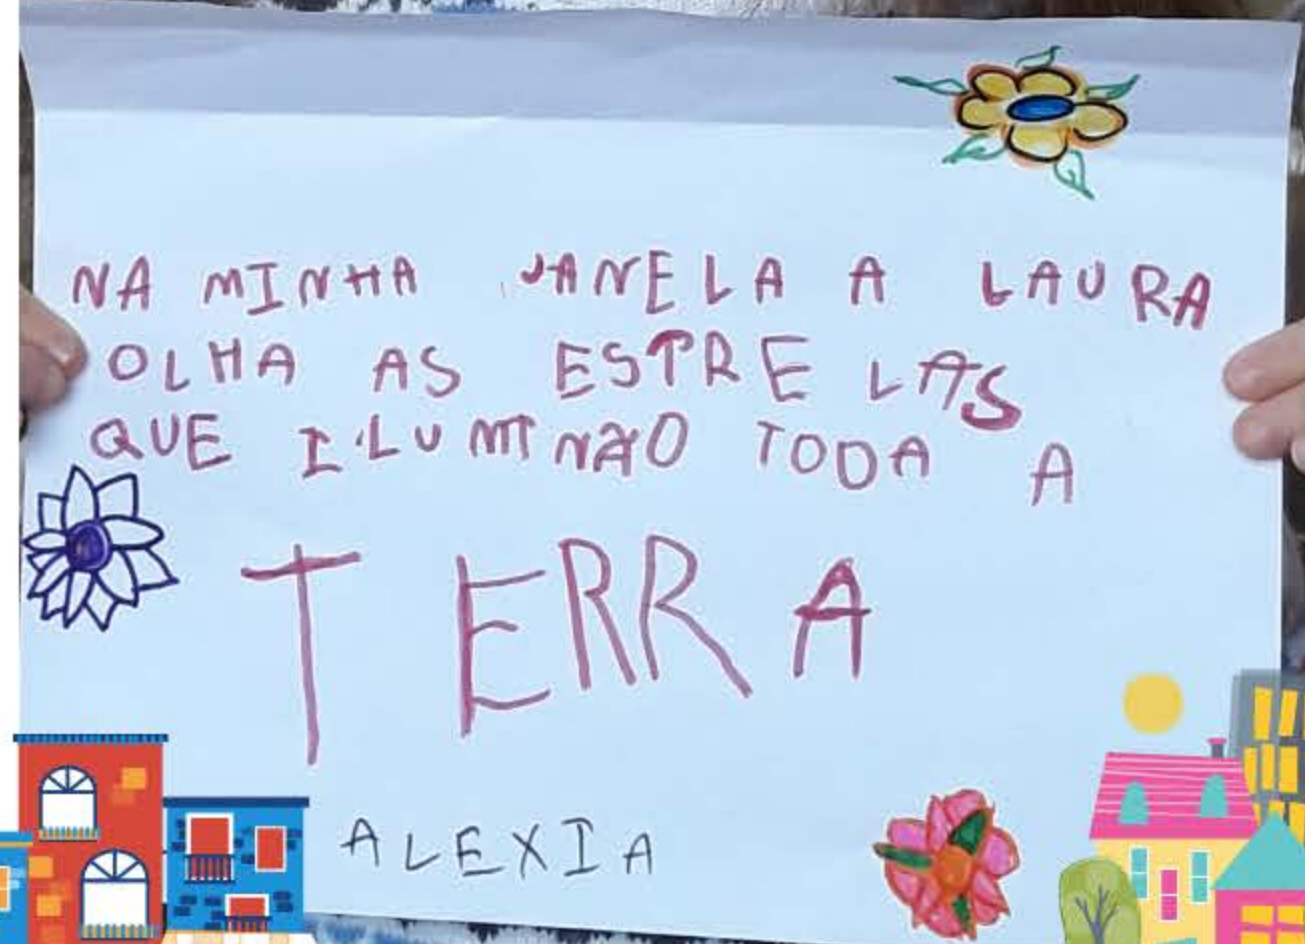 NA MINHA JANELA A LAURA
OLHA AS ESTRELAS
QUE ILUMINÃO TODA A
TERRA
ALEXIA